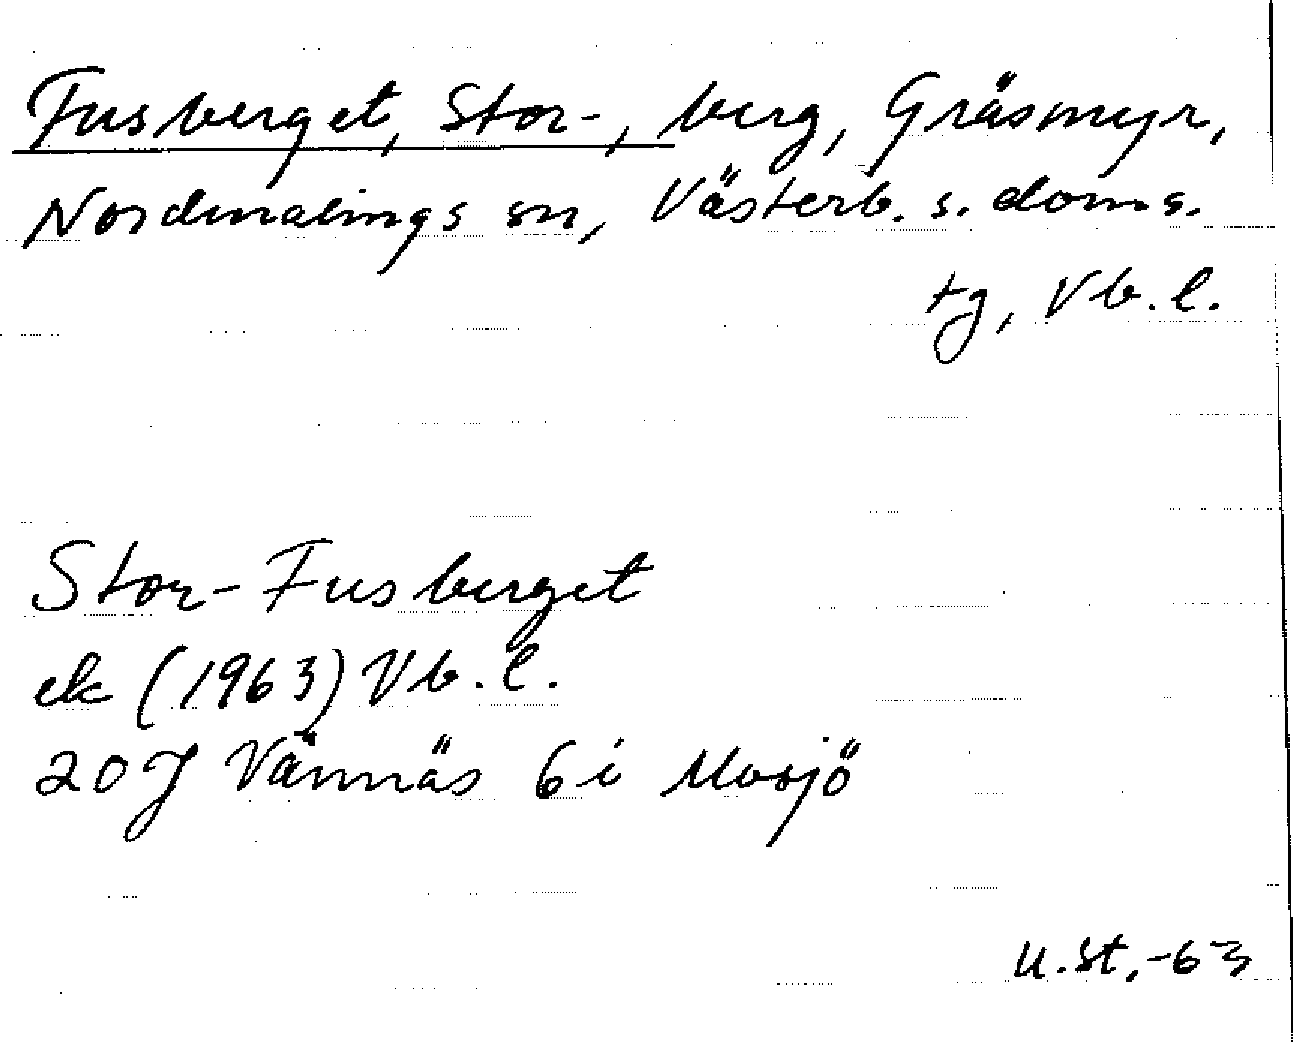 Fusberget, Stor-, berg, Gräsmyr,
Nordmalings sn, Västerb. s. doms.
tg, Vb. l.
Stor-Fusberget
ek (1963) Vb. l.
20J Vännäs 6i Mosjö
U.St.,-63